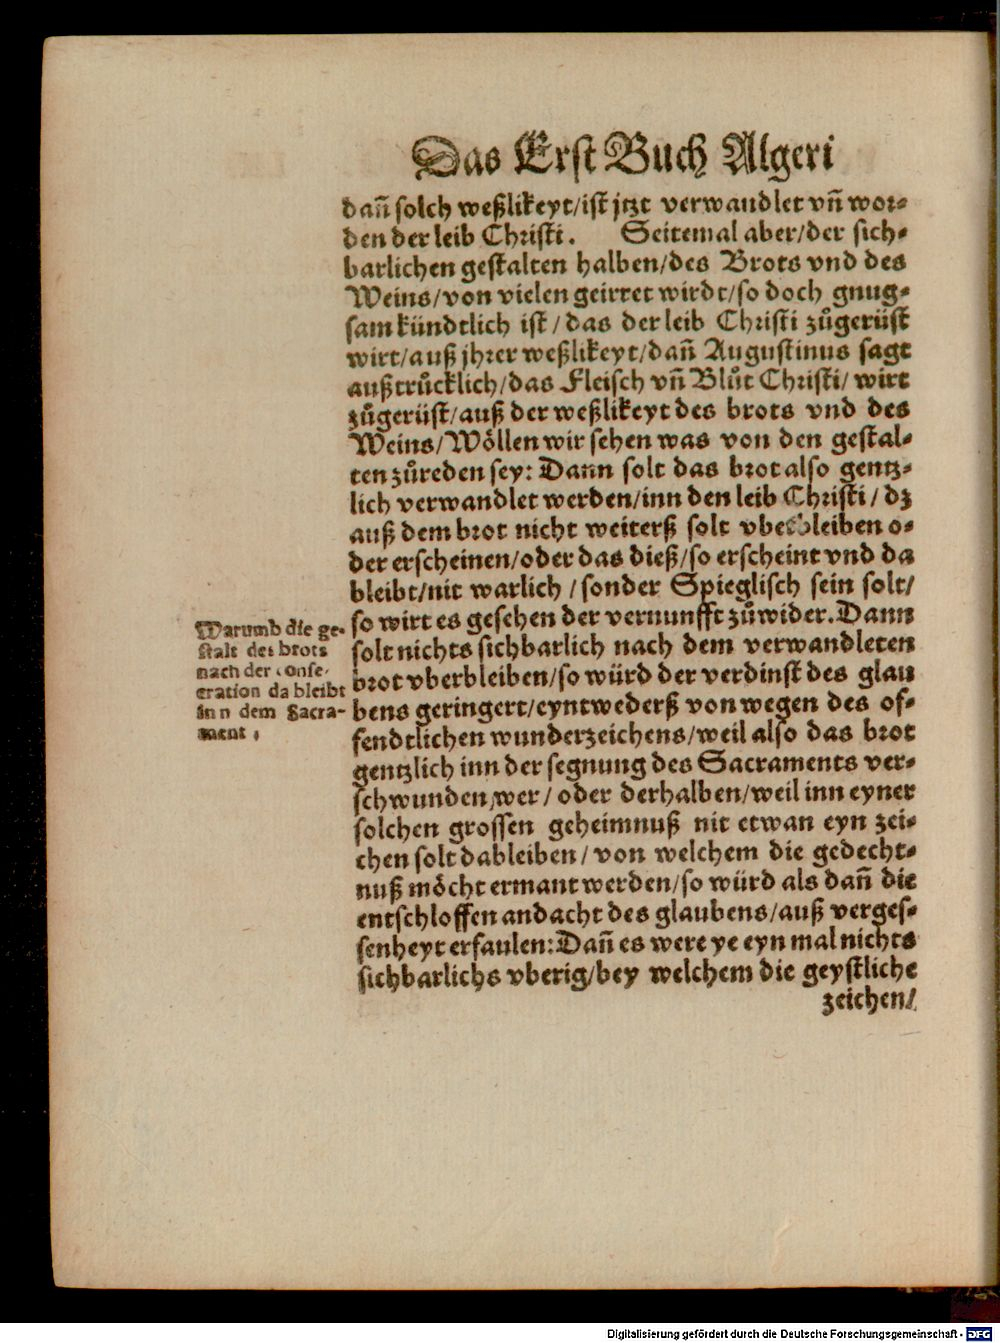 Das Erst Buch Algeri
dañ solch weßlikeyt/ist jtzt verwandlet vñ wor-
den der leib Christi. Seitemal aber/der sich-
barlichen gestalten halben/des Brots vnd des
Weins/von vielen geirret wirdt/so doch gnug-
sam kündtlich ist/das der leib Christi zůgerüst
wirt/auß jhrer weßlikeyt/dañ Augustinus sagt
außtrůcklich/das Fleisch vñ Blůt Christi/wirt
zůgerüst/auß der weßlikeyt des brots vnd des
Weins/Wöllen wir sehen was von den gestal-
ten zůreden sey: Dann solt das brot also gentz-
lich verwandlet werden/inn den leib Christi/dz
auß dem brot nicht weiterß solt vberbleiben o-
der erscheinen/oder das dieß/so erscheint vnd da
bleibt/nit warlich/sonder Spieglisch sein solt/
so wirt es gesehen der vernunfft zůwider. Dann
solt nichts sichbarlich nach dem verwandleten
brot vberbleiben/so würd der verdinst des glau
bens geringert/eyntwederß von wegen des of-
fendtlichen wunderzeichens/weil also das brot
gentzlich inn der segnung des Sacraments ver-
schwunden wer/oder derhalben/weil inn eyner
solchen grossen geheimnuß nit etwan eyn zei-
chen solt dableiben/von welchem die gedecht-
nuß möcht ermant werden/so würd als dañ die
entschloffen andacht des glaubens/auß verges-
senheyt erfaulen: Dañ es were ye eyn mal nichts
sichbarlichs vberig/bey welchem die geystliche
zeichen/
Warumb die ge-
stalt des brots
nach der Conse-
cration da bleibt
inn dem Sacra-
ment.
Digitalisierung gefördert durch die Deutsche Forschungsgemeinschaft - DFG